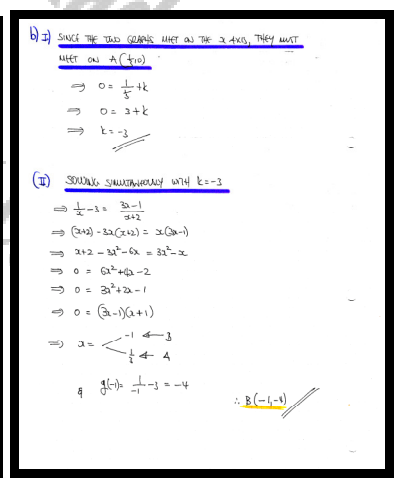 b) I) SINCE THE TWO GRAPHS MEET ON THE x AXIS, THEY MUST
MEET ON A(1/3,0)
⇒ 0 = 1/(1/3) + k
⇒ 0 = 3 + k
⇒ k = -3
(II) SOLVING SIMULTANEOUSLY WITH k = -3
⇒ 1/x - 3 = (3x-1)/(x+2)
⇒ (x+2) - 3x(x+2) = x(3x-1)
⇒ x+2 - 3x² - 6x = 3x² - x
⇒ 0 = 6x² + 4x - 2
⇒ 0 = 3x² + 2x - 1
⇒ 0 = (3x-1)(x+1)
⇒ x = < -1 ← B
1/3 ← A
& g(-1) = 1/-1 - 3 = -4
∴ B(-1,-4)